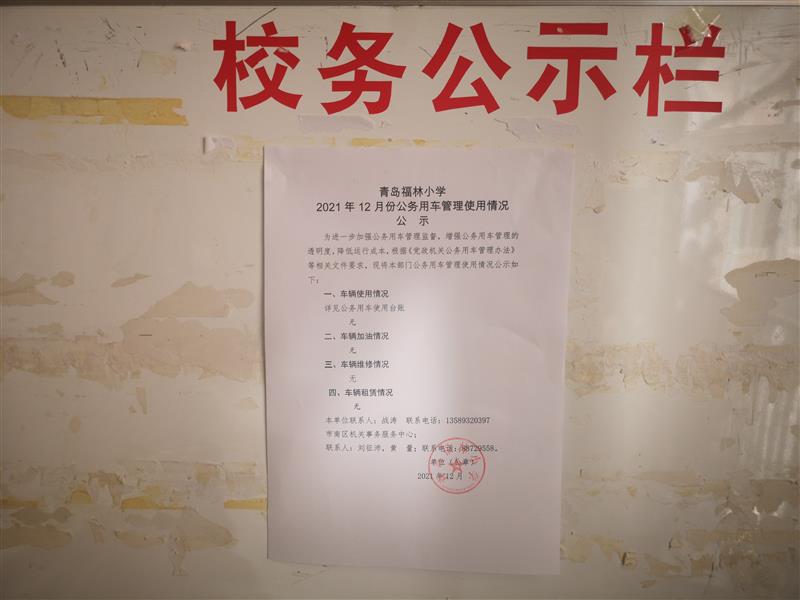 校务公示栏
青岛福林小学
2021年12月份公务用车管理使用情况
公 示
为进一步加强公务用车管理监督，增强公务用车管理的
透明度，降低运行成本，根据《党政机关公务用车管理办法》
等相关文件要求，现将本部门公务用车管理使用情况公示如
下：
一、车辆使用情况
详见公务用车使用台账
无
二、车辆加油情况
无
三、车辆维修情况
无
四、车辆租赁情况
无
本单位联系人：战涛 联系电话：13589320397
市南区机关事务服务中心；
联系人：刘征沛，黄 量；联系电话：88729558。
单位（公章）
2021年12月